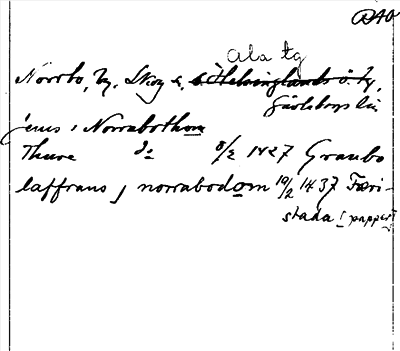 DAO
Ala tg
Norrbo, by, Skog s, Helsinglands ö. tg,
Gävleborgs län
jens i Norrabothom
Thure do 8/2 1427 Granbo
laffrans j norrabodom 19/2 1437 Færi-
stada (papper)